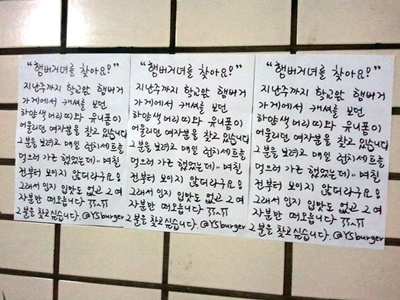 "햄버거녀를 찾아요!"
지난주까지 학교앞 햄버거
가게에서 캐셔를 보던
하얀색머리띠와 유니폼이
어울리던 여자분을 찾고 있습니다
그분을 보려고 매일 런치세트를
먹으러 가곤 했었는데.. 며칠
전부터 보이지 않더라구요
그래서 인지 입맛도 없고 그 여
자분만 떠오릅니다
그분을 찾고싶습니다. @YSburger
"햄버거녀를 찾아요!"
지난주까지 학교앞 햄버거
가게에서 캐셔를 보던
하얀색머리띠와 유니폼이
어울리던 여자분을 찾고 있습니다
그분을 보려고 매일 런치세트를
먹으러 가곤 했었는데.. 며칠
전부터 보이지 않더라구요
그래서 인지 입맛도 없고 그 여
자분만 떠오릅니다
그분을 찾고싶습니다. @YSburger
"햄버거녀를 찾아요!"
지난주까지 학교앞 햄버거
가게에서 캐셔를 보던
하얀색머리띠와 유니폼이
어울리던 여자분을 찾고 있습니다
그분을 보려고 매일 런치세트를
먹으러 가곤 했었는데.. 며칠
전부터 보이지 않더라구요
그래서 인지 입맛도 없고 그 여
자분만 떠오릅니다
그분을 찾고싶습니다. @YSburger